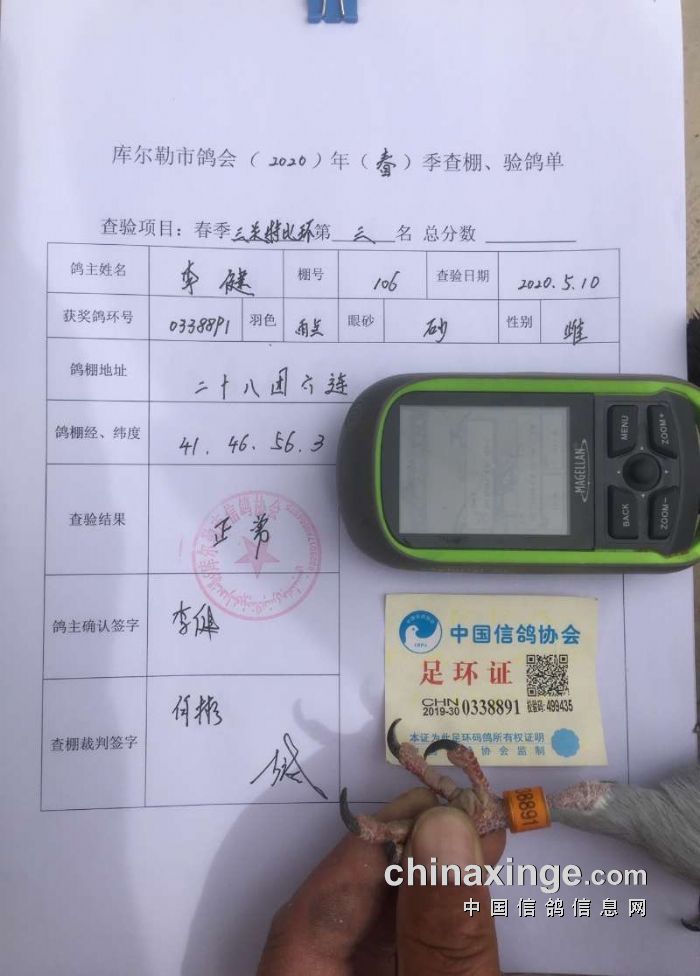 库尔勒市鸽会（2020）年（春）季查棚、验鸽单
查验项目：春季三关特比环第 三 名 总分数
鸽主姓名 李健 棚号 106 查验日期 2020.5.10
获奖鸽环号 0338891 羽色 雨点 眼砂 砂 性别 雌
鸽棚地址 二十八团六连
鸽棚经、纬度 41.46.56.3
查验结果 正常
鸽主确认签字 李健
查棚裁判签字 何彬
MAGELLAN
MENU
ZOOM+
BACK
ZOOM-
中国信鸽协会
足环证
CHN
2019-30 0338891 校验码: 499435
本证为此足环码鸽所有权证明
协会监制
38891
chinaxinge.com
中国信鸽信息网